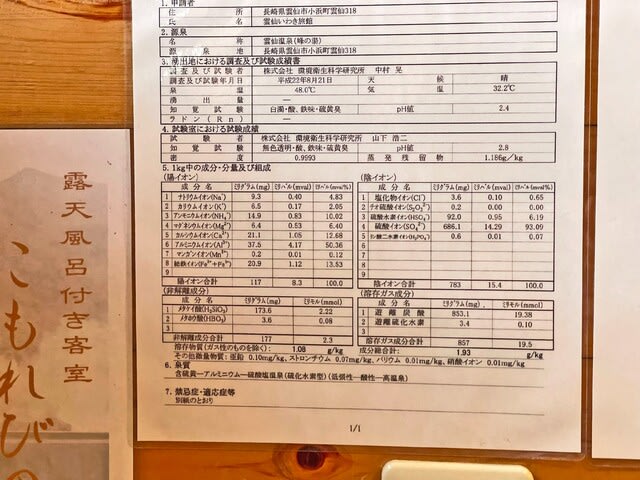 1. 申請者
住所 長崎県雲仙市小浜町雲仙318
氏名 雲仙いわき旅館
2. 源泉
名称 雲仙温泉(蜂の湯)
源泉地 長崎県雲仙市小浜町雲仙318
3. 湧出地における調査及び試験成績書
調査及び試験者 株式会社 環境衛生科学研究所 中村 晃
調査及び試験年月日 平成22年8月21日 天候 晴
泉温 48.0℃ 気温 32.2℃
湧出量 —
知覚試験 白濁・酸、鉄味・硫黄臭 pH値 2.4
ラドン(Rn) —
4. 試験室における試験成績
試験者 株式会社 環境衛生科学研究所 山下 浩二
知覚試験 無色透明・酸、鉄味・硫黄臭 pH値 2.8
密度 0.9993 蒸発残留物 1.186g/kg
5. 1kg中の成分・分量及び組成
(陽イオン)
成分名 ミリグラム(mg) ミリバル(mval) ミリバル(mval%)
1 ナトリウムイオン(Na⁺) 9.3 0.40 4.83
2 カリウムイオン(K⁺) 6.5 0.17 2.05
3 アンモニウムイオン(NH₄⁺) 14.9 0.83 10.02
4 マグネシウムイオン(Mg²⁺) 6.4 0.53 6.40
5 カルシウムイオン(Ca²⁺) 21.1 1.05 12.68
6 アルミニウムイオン(Al³⁺) 37.5 4.17 50.36
7 マンガンイオン(Mn²⁺) 0.2 0.01 0.12
8 総鉄イオン(Fe²⁺+Fe³⁺) 20.9 1.12 13.53
9
陽イオン合計 117 8.3 100.0
(陰イオン)
成分名 ミリグラム(mg) ミリバル(mval) ミリバル(mval%)
1 塩化物イオン(Cl⁻) 3.6 0.10 0.65
2 チオ硫酸イオン(S₂O₃²⁻) 0.2 0.00 0.00
3 硫酸水素イオン(HSO₄⁻) 92.0 0.95 6.19
4 硫酸イオン(SO₄²⁻) 686.1 14.29 93.09
5 リン酸二水素イオン(H₂PO₄⁻) 0.6 0.01 0.07
6
7
8
9
陰イオン合計 783 15.4 100.0
(非解離成分)
成分名 ミリグラム(mg) ミリモル(mmol)
1 メタケイ酸(H₂SiO₃) 173.6 2.22
2 メタホウ酸(HBO₂) 3.6 0.08
3
非解離成分合計 177 2.3
溶存物質(ガス性のものを除く): 1.08 g/kg
(溶存ガス成分)
成分名 ミリグラム(mg) ミリモル(mmol)
1 遊離炭酸 853.1 19.38
2 遊離硫化水素 3.4 0.10
3
溶存ガス成分合計 857 19.5
成分総合計: 1.93 g/kg
その他微量物質:亜鉛 0.10mg/kg、ストロンチウム 0.07mg/kg、バリウム 0.01mg/kg、硝酸イオン 0.01mg/kg
6. 泉質
含硫黄ーアルミニウムー硫酸塩温泉(硫化水素型)(低張性ー酸性ー高温泉)
7. 禁忌症・適応症等
別紙のとおり
1/1
露天風呂付き客室
こもれびの